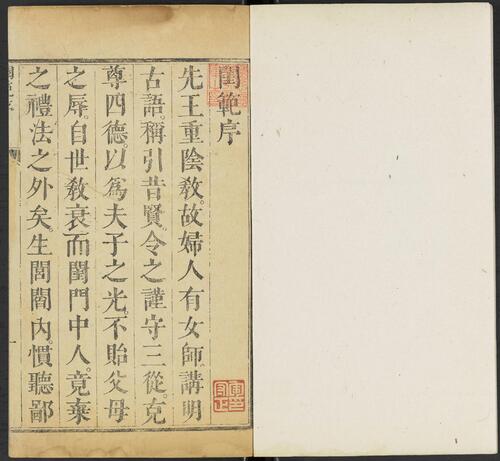 閨範序
先王重陰敎。故婦人有女師。講明
古語。稱引昔賢。令之謹守三從。克
尊四德。以爲夫子之光。不貽父母
之辱。自世敎衰而閨門中人。竟棄
之禮法之外矣。生閭閻內。慣聽鄙
一